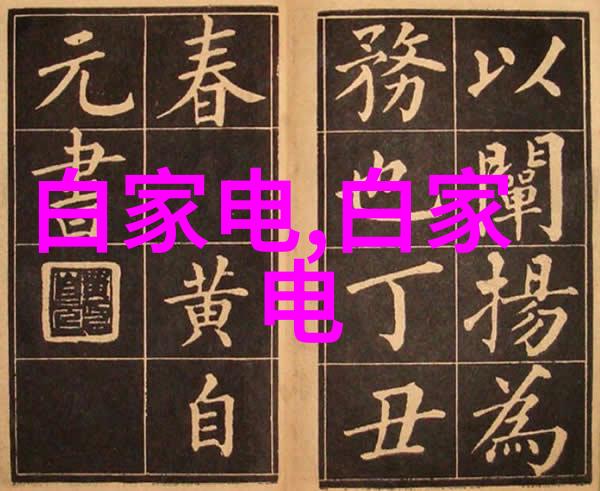 白家电,白家
电
以闡揚為
務也丁丑
春
黄自
元書